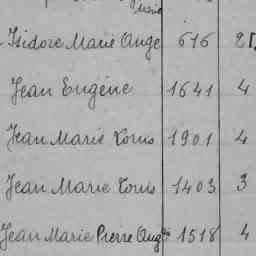 Marie
Isidore Marie Ange 616
Jean Eugène 1641 4
Jean Marie Louis 1901 4
Jean Marie Louis 1403 3
Jean Marie Pierre Augte 1518 4